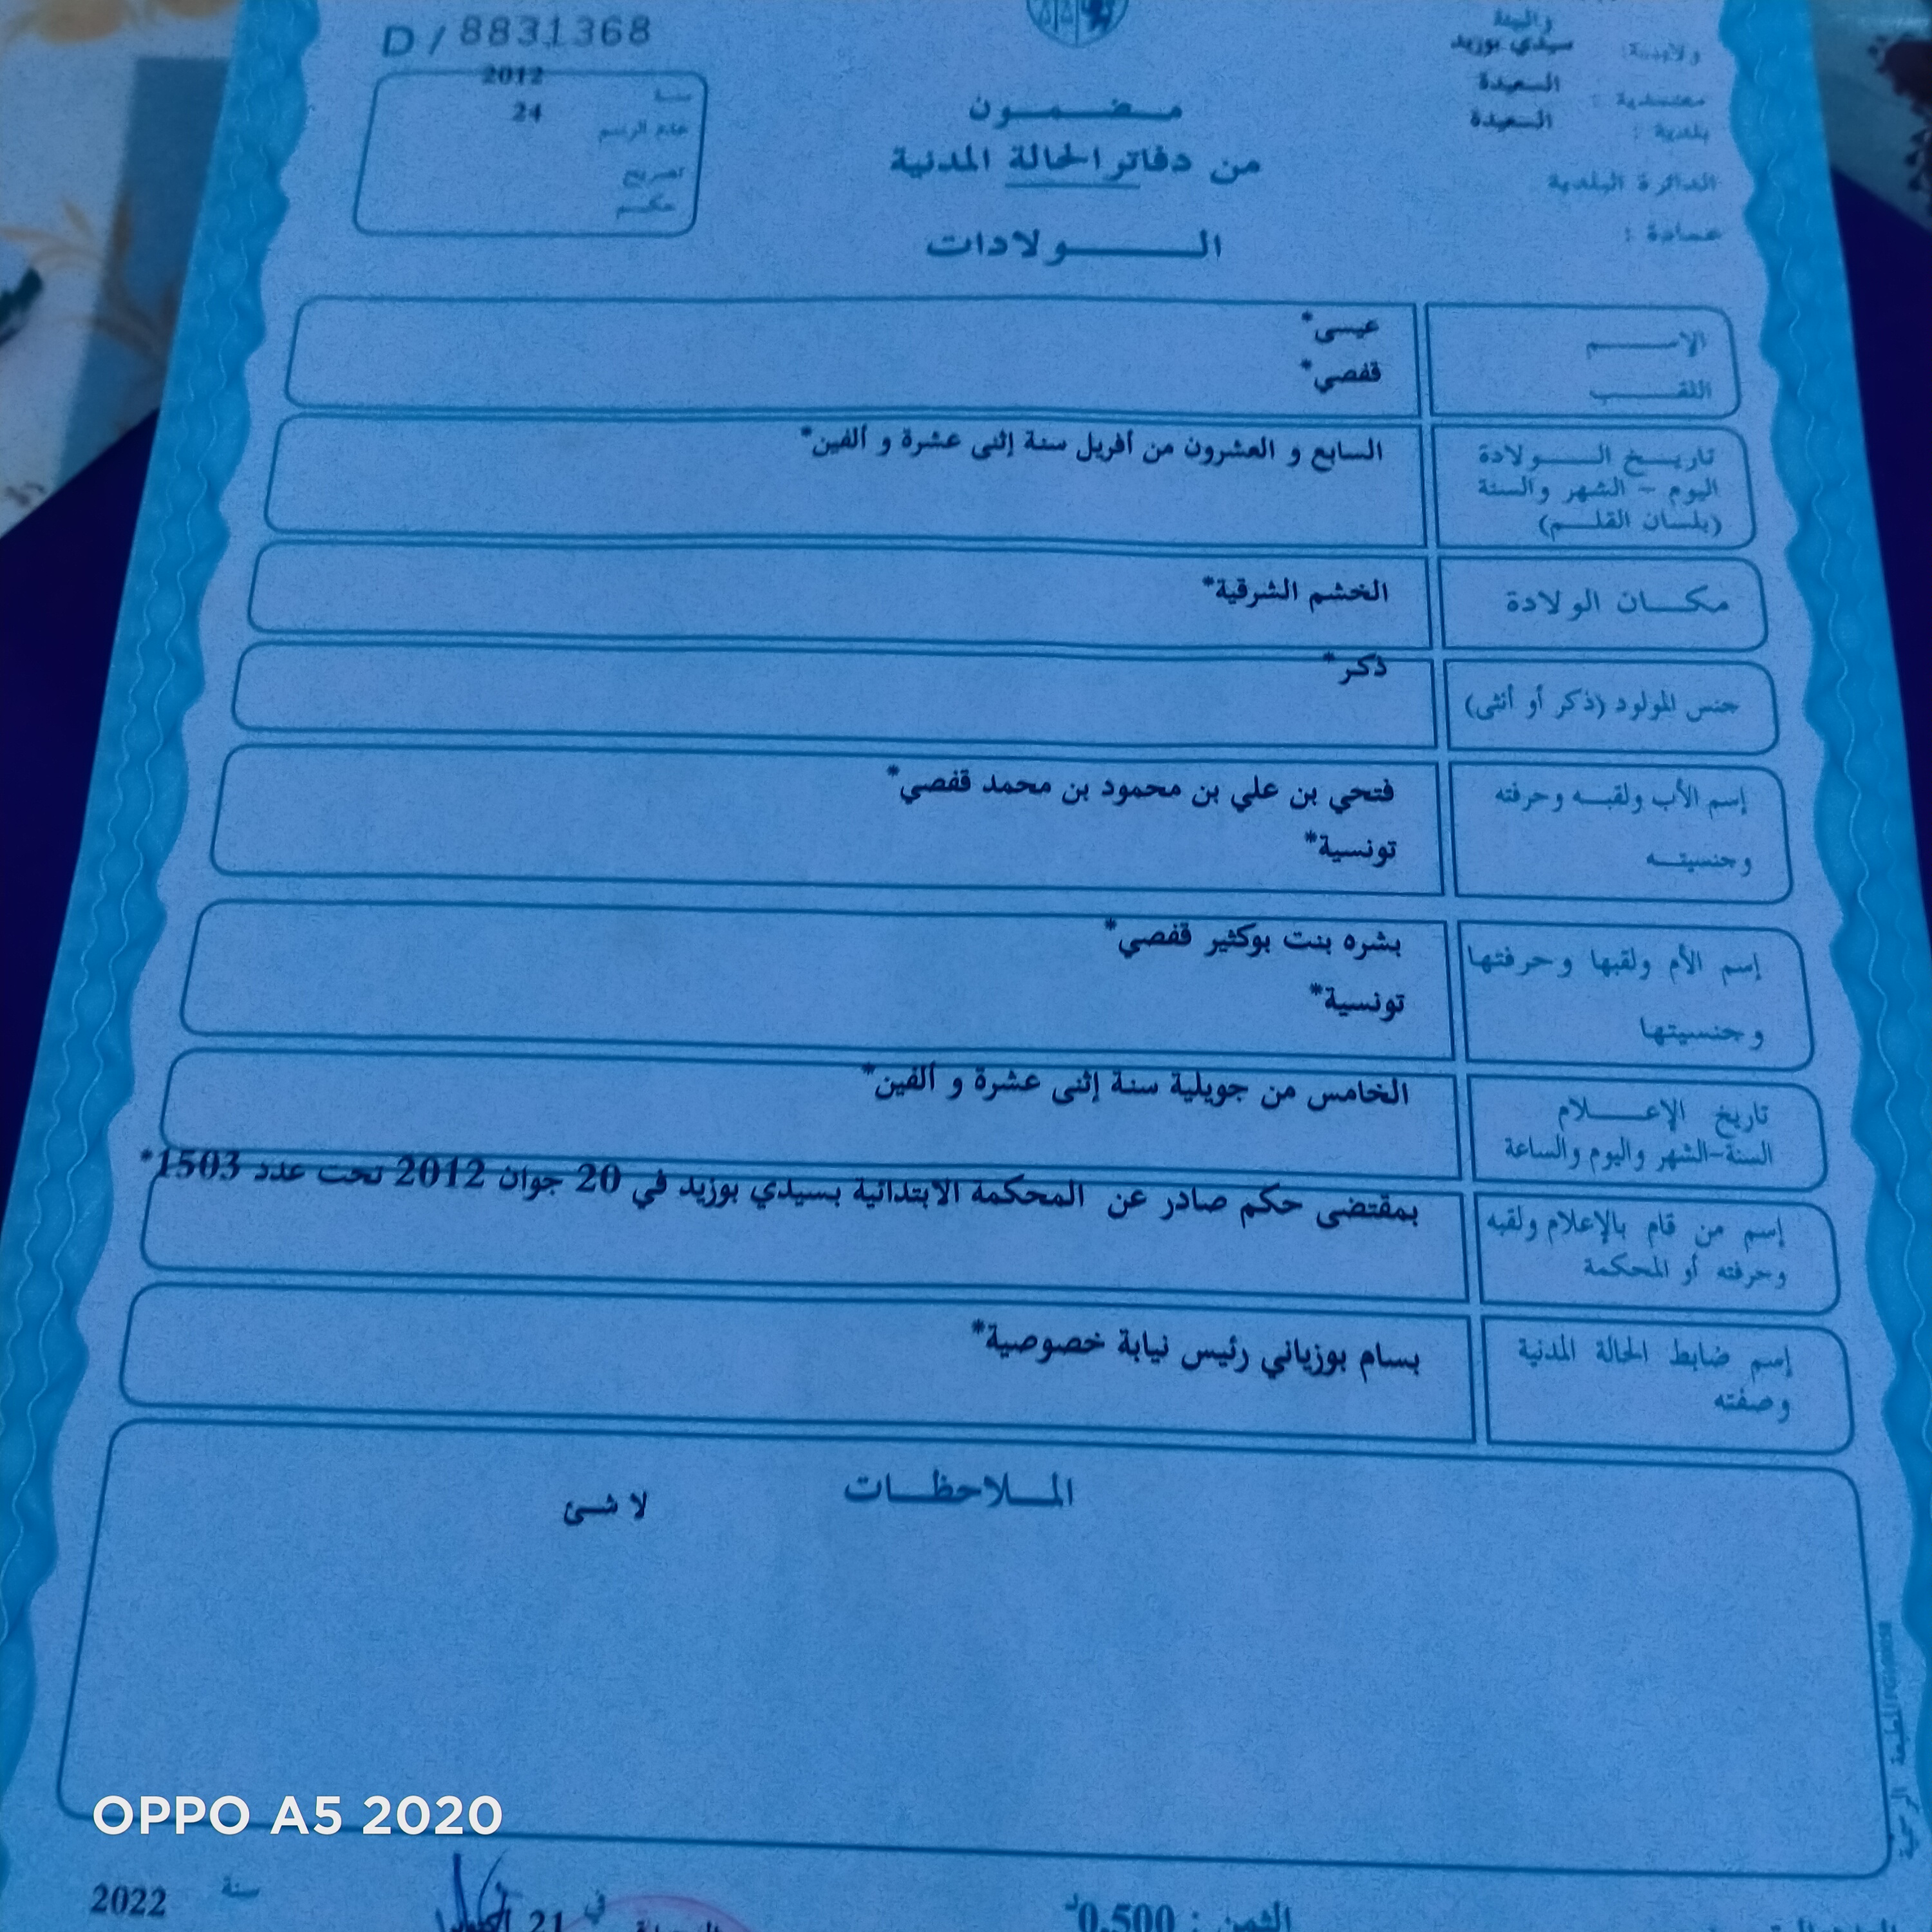 D / 8831368
ولاية: سيدي بوزيد
معتمدية : السعيدة
بلدية : السعيدة
الدائرة البلدية
عمادة :
2012
عدد الرسم 24
تصريح
حكم
مضمون
من دفاتر الحالة المدنية
الولادات
الإسم عيسى*
اللقب قفصي*
تاريخ الولادة
اليوم - الشهر والسنة
(بلسان القلم)
السابع و العشرون من أفريل سنة إثنى عشرة و ألفين*
مكان الولادة الخشم الشرقية*
جنس المولود (ذكر أو أنثى) ذكر*
إسم الأب ولقبه وحرفته فتحي بن علي بن محمود بن محمد قفصي*
وجنسيته تونسية*
إسم الأم ولقبها وحرفتها بشره بنت بوكثير قفصي*
وجنسيتها تونسية*
تاريخ الإعلام
السنة-الشهر واليوم والساعة
الخامس من جويلية سنة إثنى عشرة و ألفين*
إسم من قام بالإعلام ولقبه
وحرفته أو المحكمة
بمقتضى حكم صادر عن المحكمة الابتدائية بسيدي بوزيد في 20 جوان 2012 تحت عدد 1503*
إسم ضابط الحالة المدنية
وصفته
بسام بوزياني رئيس نيابة خصوصية*
الملاحظات
لا شئ
الثمن : 0,500د
في 21
سنة 2022
OPPO A5 2020